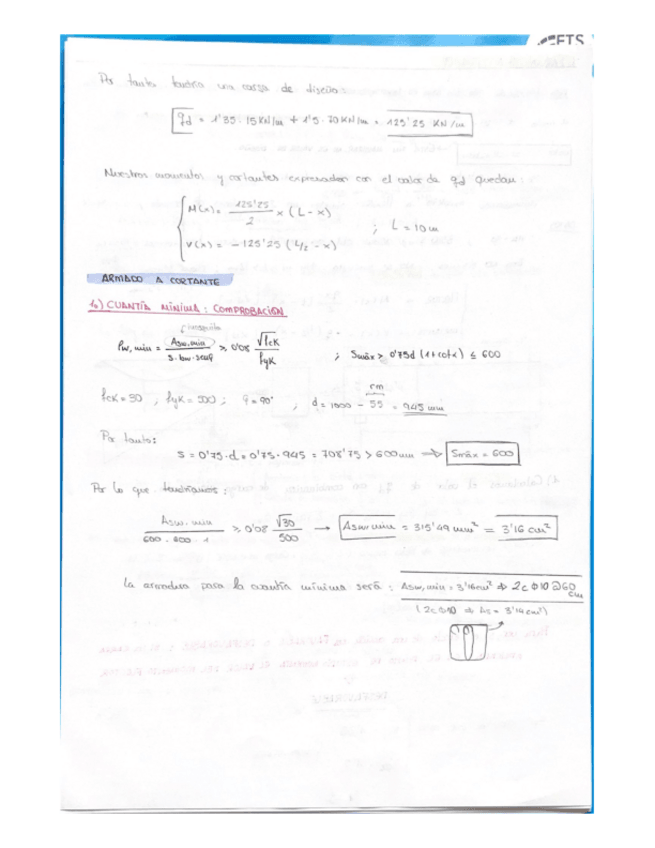 ETS
Por tanto tendría una carga de diseño:
qd = 1'35 · 15 KN/m + 1'5 · 70 KN/m = 125'25 KN/m
Nuestros momentos y cortantes expresados con el valor de qd quedan:
M(x) = 125'25/2 x (L - x)
; L = 10 m
V(x) = -125'25 (L/2 - x)
ARMADO A CORTANTE
1.) CUANTÍA MÍNIMA: COMPROBACIÓN
incógnita
ρw,min = Asw.min / s·bw·senα ≥ 0'08 √fck / fyk ; Smáx > 0'75d (1+cotα) ≤ 600
rm
fck = 30 ; fyk = 500 ; α = 90° ; d = 1000 - 55 = 945 mm
Por tanto:
S = 0'75·d = 0'75·945 = 708'75 > 600mm ⇒ Smáx = 600
Por lo que tendríamos:
Asw.min / 600·600·1 ≥ 0'08 √30 / 500 → Asw,min = 315'49 mm² = 3'16 cm²
La armadura para la cuantía mínima será: Asw,min = 3'16cm² ⇒ 2cΦ10@60 cm
(2cΦ10 ⇒ As = 3'14cm²)